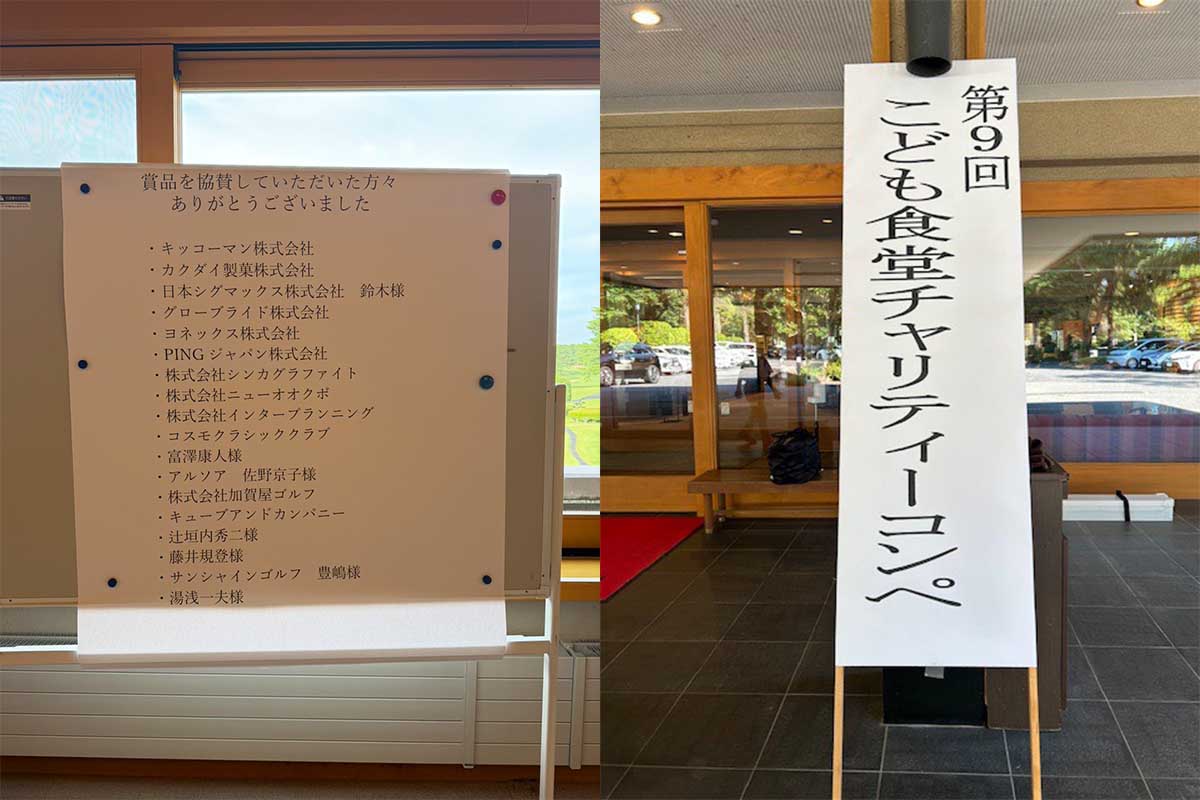 賞品を協賛していただいた方々
ありがとうございました
・キッコーマン株式会社
・カクダイ製菓株式会社
・日本シグマックス株式会社　鈴木様
・グローブライド株式会社
・ヨネックス株式会社
・PINGジャパン株式会社
・株式会社シンカグラファイト
・株式会社ニューオオクボ
・株式会社インタープランニング
・コスモクラシッククラブ
・富澤康人様
・アルソア　佐野京子様
・株式会社加賀屋ゴルフ
・キューブアンドカンパニー
・辻垣内秀二様
・藤井規登様
・サンシャインゴルフ　豊嶋様
・湯浅一夫様
第9回
こども食堂チャリティーコンペ